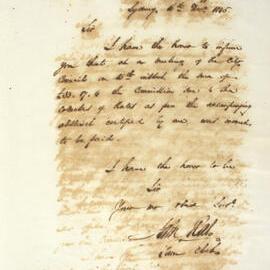 Sydney 16th Decr 1845
Sir
I have the honor to inform
you that at a meeting of the City
Council on 15th instant the sum of
£22. 17. 6 the Commission due to the
Collector of Rates as per the accompanying
abstract certified by me, was ordered
to be paid.
I have the honor to be
Sir
Your mo obed Servt
Town Clerk